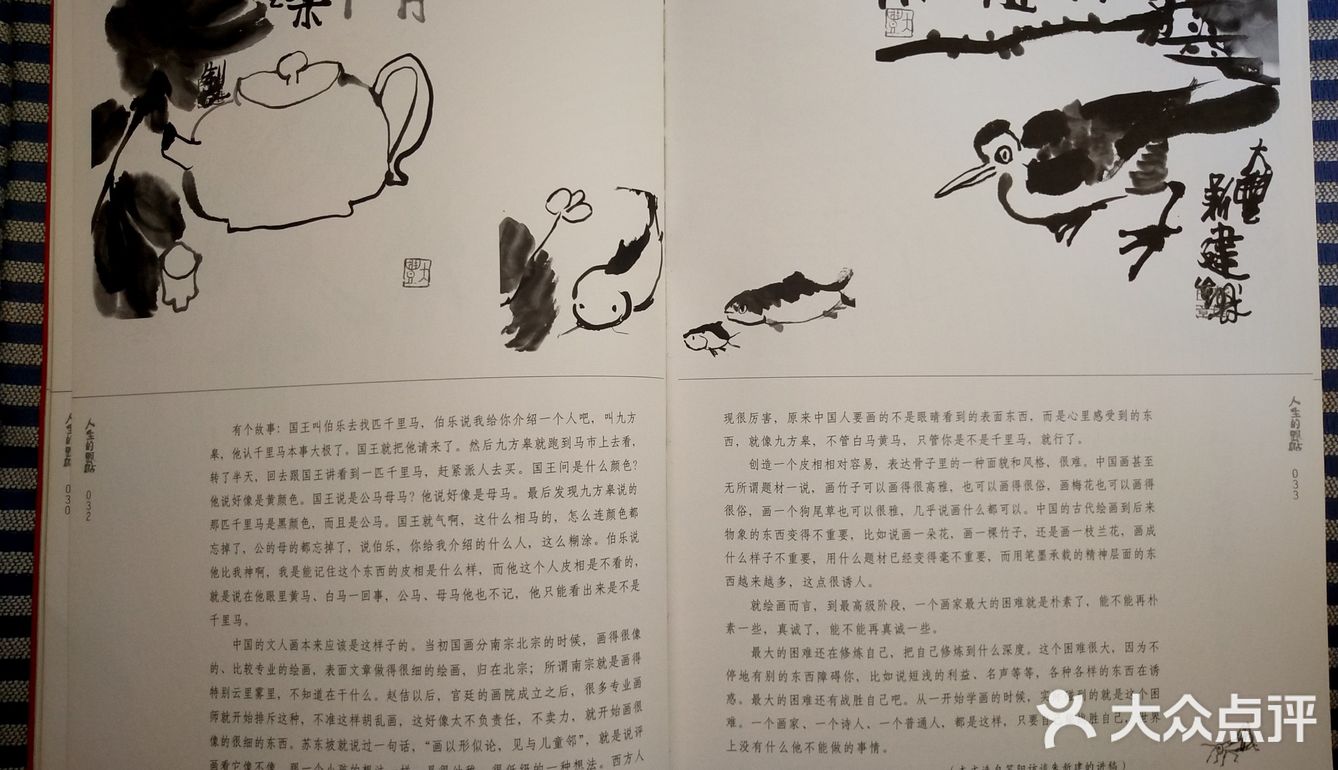 大豐
新建
人生的跟點
030
人生的跟點
032
有个故事：国王叫伯乐去找匹千里马，伯乐说我给你介绍一个人吧，叫九方
皋，他认千里马本事大极了。国王就把他请来了。然后九方皋就跑到马市上去看，
转了半天，回去跟国王讲看到一匹千里马，赶紧派人去买。国王问是什么颜色？
他说好像是黄颜色。国王说是公马母马？他说好像是母马。最后发现九方皋说的
那匹千里马是黑颜色，而且是公马。国王就气啊，这什么相马的，怎么连颜色都
忘掉了，公的母的都忘掉了，说伯乐，你给我介绍的什么人，这么糊涂。伯乐说
他比我神啊，我是能记住这个东西的皮相是什么样，而他这个人皮相是不看的，
就是说在他眼里黄马、白马一回事，公马、母马他也不记，他只能看出来是不是
千里马。
中国的文人画本来应该是这样子的。当初国画分南宗北宗的时候，画得很像
的、比较专业的绘画，表面文章做得很细的绘画，归在北宗；所谓南宗就是画得
特别云里雾里，不知道在干什么。赵佶以后，宫廷的画院成立之后，很多专业画
师就开始排斥这种，不准这样胡乱画，这好像太不负责任，不卖力，就开始画很
像的很细的东西。苏东坡就说过一句话，“画以形似论，见与儿童邻”，就是说评
画看它像不像，跟一个小孩的想法一样，是很幼稚、很低级的一种想法。西方人
现很厉害，原来中国人要画的不是眼睛看到的表面东西，而是心里感受到的东
西，就像九方皋，不管白马黄马，只管你是不是千里马，就行了。
创造一个皮相相对容易，表达骨子里的一种面貌和风格，很难。中国画甚至
无所谓题材一说，画竹子可以画得很高雅，也可以画得很俗，画梅花也可以画得
很俗，画一个狗尾草也可以很雅，几乎说画什么都可以。中国的古代绘画到后来
物象的东西变得不重要，比如说画一朵花，画一棵竹子，还是画一枝兰花，画成
什么样子不重要，用什么题材已经变得毫不重要，而用笔墨承载的精神层面的东
西越来越多，这点很诱人。
就绘画而言，到最高级阶段，一个画家最大的困难就是朴素了，能不能再朴
素一些，真诚了，能不能再真诚一些。
最大的困难还在修炼自己，把自己修炼到什么深度。这个困难很大，因为不
停地有别的东西障碍你，比如说短浅的利益、名声等等，各种各样的东西在诱
惑。最大的困难还有战胜自己吧。从一开始学画的时候，实 到的就是这个困
难。一个画家、一个诗人、一个普通人，都是这样，只要自 战胜自己，世界
上没有什么他不能做的事情。
人生的跟點
033
大众点评